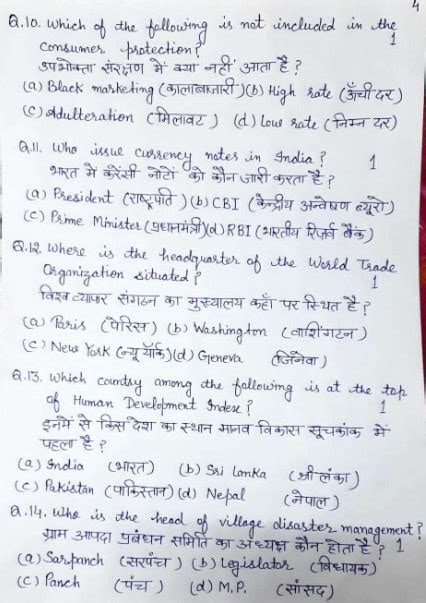 4
Q.10. Which of the following is not included in the
consumer protection? 1
उपभोक्ता संरक्षण में क्या नहीं आता है ?
(a) Black marketing (कालाबाजारी) (b) High rate (ऊँची दर)
(c) Adulteration (मिलावट) (d) Low rate (निम्न दर)
Q.11. Who issue currency notes in India ? 1
भारत में करेंसी नोटों को कौन जारी करता है ?
(a) President (राष्ट्रपति) (b) CBI (केन्द्रीय अन्वेषण ब्यूरो)
(c) Prime Minister (प्रधानमंत्री) (d) RBI (भारतीय रिजर्व बैंक)
Q.12. Where is the headquarter of the World Trade
Organization situated ? 1
विश्व व्यापार संगठन का मुख्यालय कहाँ पर स्थित है ?
(a) Paris (पेरिस) (b) Washington (वाशिंगटन)
(c) New York (न्यू यॉर्क) (d) Geneva (जिनेवा)
Q.13. Which country among the following is at the top
of Human Development Index ? 1
इनमें से किस देश का स्थान मानव विकास सूचकांक में
पहला है ?
(a) India (भारत) (b) Sri Lanka (श्री लंका)
(c) Pakistan (पाकिस्तान) (d) Nepal (नेपाल)
Q.14. Who is the head of village disaster management ?
ग्राम आपदा प्रबंधन समिति का अध्यक्ष कौन होता है ? 1
(a) Sarpanch (सरपंच) (b) Legislator (विधायक)
(c) Panch (पंच) (d) M.P. (सांसद)